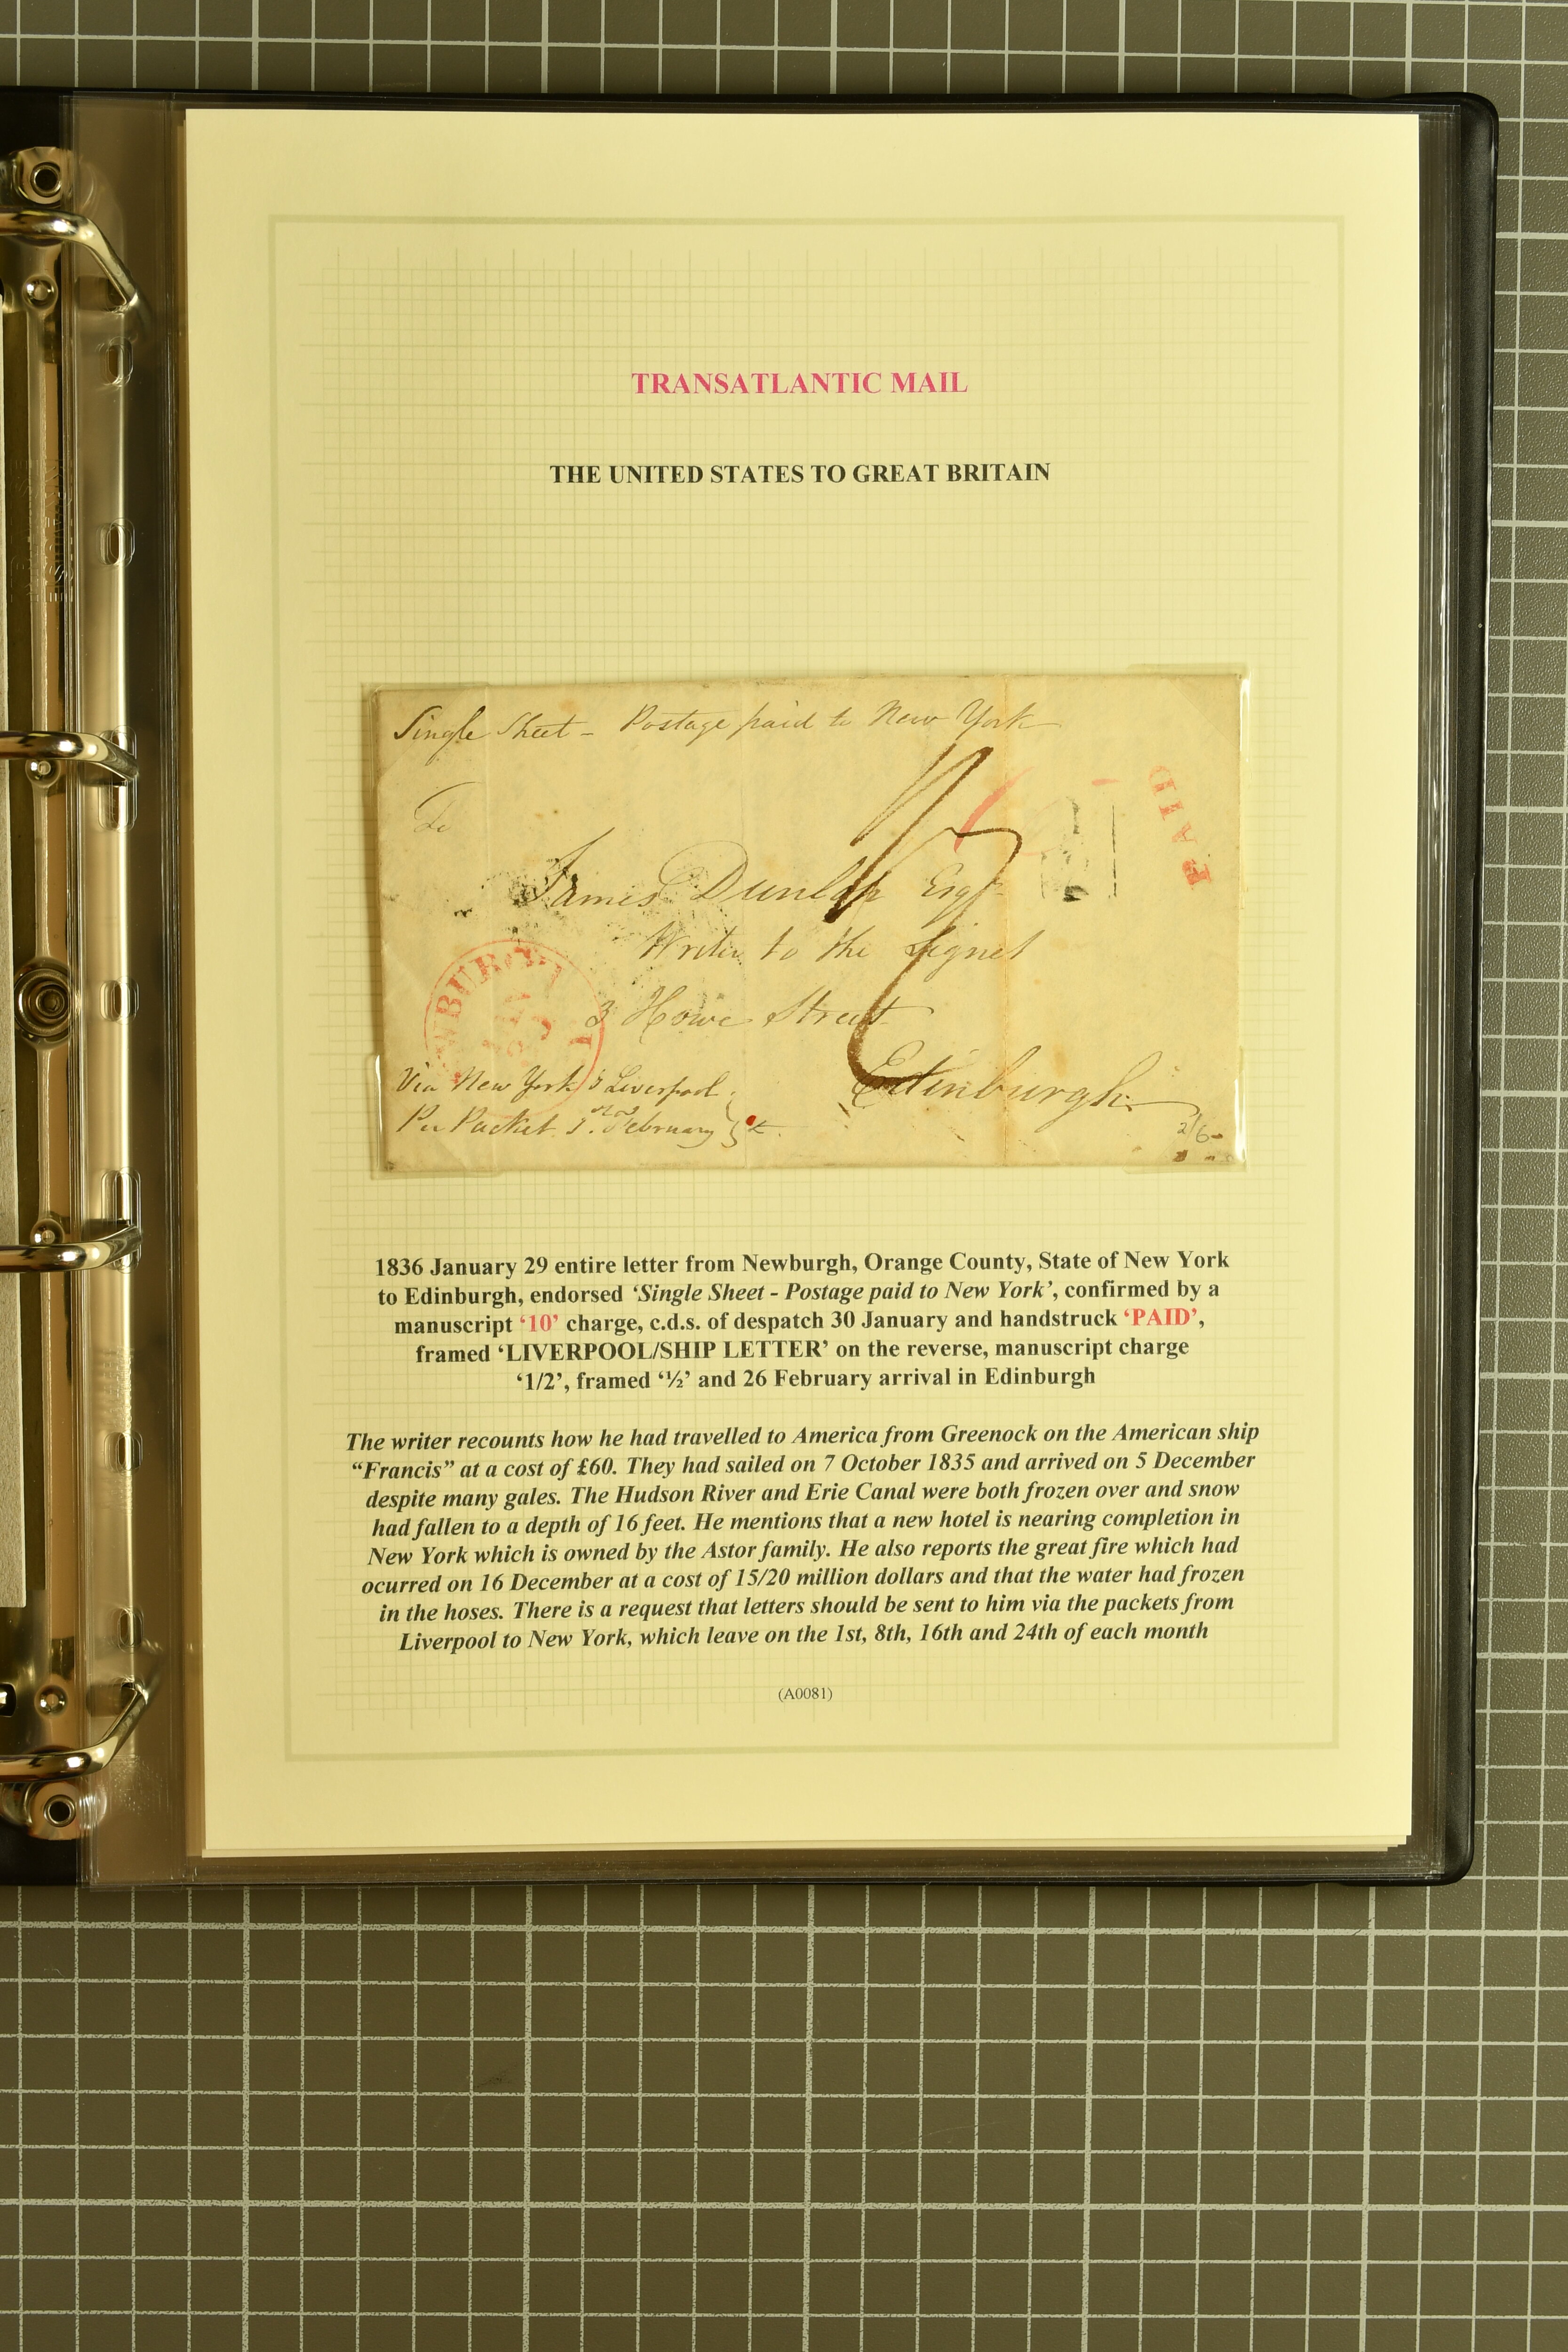 TRANSATLANTIC MAIL
THE UNITED STATES TO GREAT BRITAIN
Single Sheet - Postage paid to New York
PAID
To
James Dunlop Esqr
Writer to the Signet
3 Howe Street
Edinburgh
Via New York & Liverpool
Per Packet February
2/6
1836 January 29 entire letter from Newburgh, Orange County, State of New York
to Edinburgh, endorsed ‘Single Sheet - Postage paid to New York’, confirmed by a
manuscript ‘10’ charge, c.d.s. of despatch 30 January and handstruck ‘PAID’,
framed ‘LIVERPOOL/SHIP LETTER’ on the reverse, manuscript charge
‘1/2’, framed ‘½’ and 26 February arrival in Edinburgh
The writer recounts how he had travelled to America from Greenock on the American ship
“Francis” at a cost of £60. They had sailed on 7 October 1835 and arrived on 5 December
despite many gales. The Hudson River and Erie Canal were both frozen over and snow
had fallen to a depth of 16 feet. He mentions that a new hotel is nearing completion in
New York which is owned by the Astor family. He also reports the great fire which had
ocurred on 16 December at a cost of 15/20 million dollars and that the water had frozen
in the hoses. There is a request that letters should be sent to him via the packets from
Liverpool to New York, which leave on the 1st, 8th, 16th and 24th of each month
(A0081)